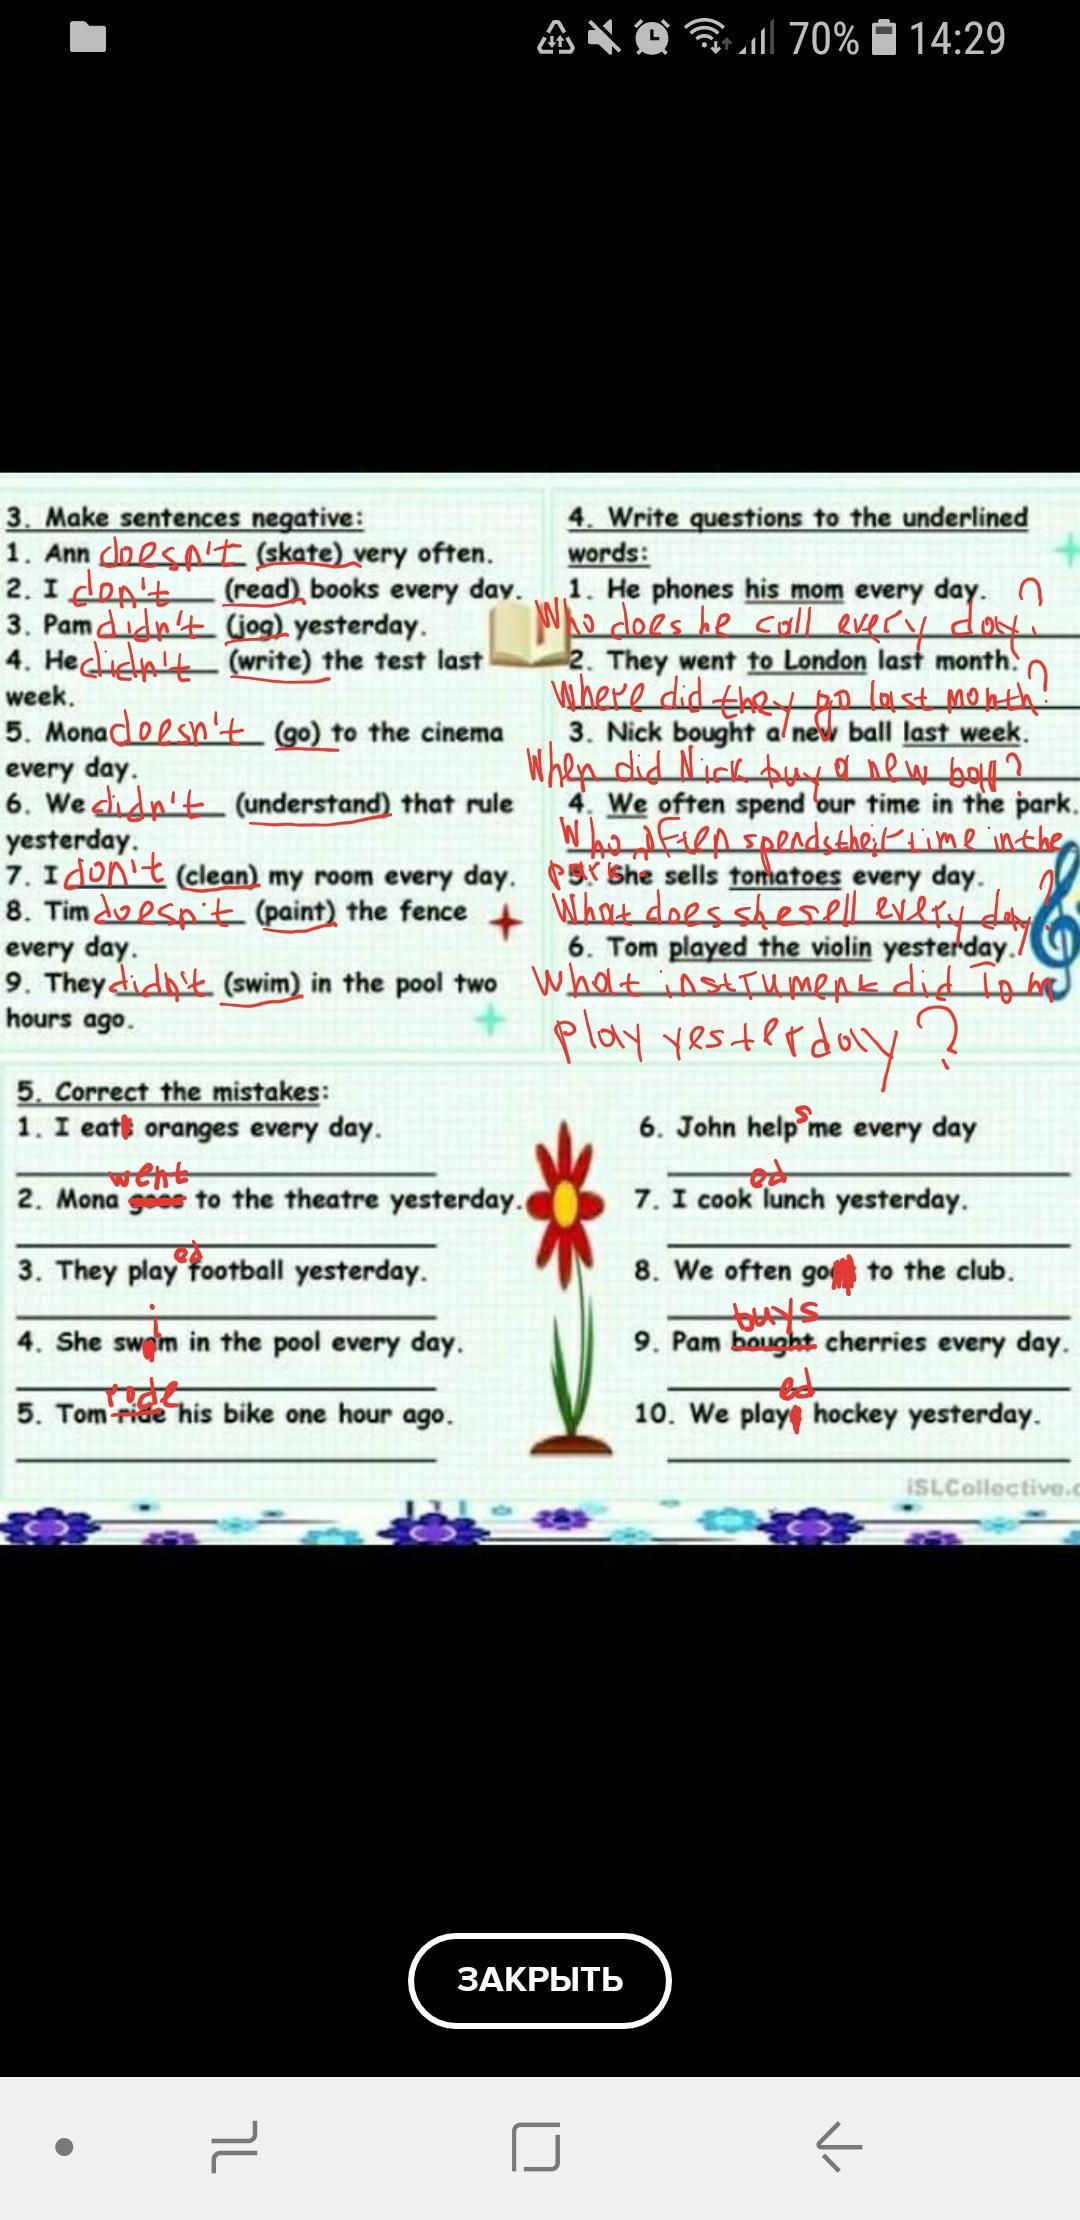 70% 14:29
3. Make sentences negative:
1. Ann doesn't (skate) very often.
2. I don't (read) books every day.
3. Pam didn't (jog) yesterday.
4. He didn't (write) the test last
week.
5. Mona doesn't (go) to the cinema
every day.
6. We didn't (understand) that rule
yesterday.
7. I don't (clean) my room every day.
8. Tim doesn't (paint) the fence
every day.
9. They didn't (swim) in the pool two
hours ago.
4. Write questions to the underlined
words:
1. He phones his mom every day.
Who does he call every day?
2. They went to London last month.
Where did they go last month?
3. Nick bought a new ball last week.
When did Nick buy a new ball?
4. We often spend our time in the park.
Who often spends their time in the
park.
5. She sells tomatoes every day.
What does she sell every day?
6. Tom played the violin yesterday.
What instrument did Tom
play yesterday?
5. Correct the mistakes:
1. I eat oranges every day.
went
2. Mona goes to the theatre yesterday.
ed
3. They play football yesterday.
i
4. She swam in the pool every day.
rode
5. Tom ride his bike one hour ago.
s
6. John help me every day
ed
7. I cook lunch yesterday.
8. We often go to the club.
buys
9. Pam bought cherries every day.
ed
10. We play hockey yesterday.
iSLCollective.c
ЗАКРЫТЬ